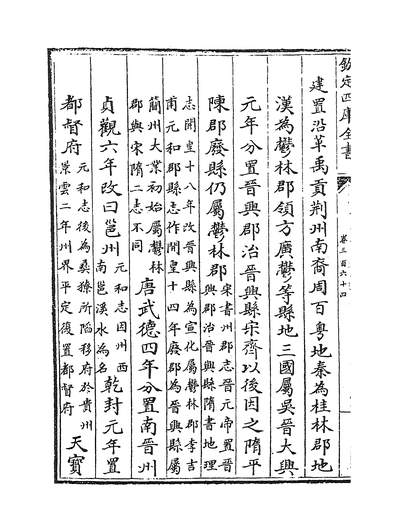 欽定四庫全書
卷三百六十四
建置沿革禹貢荆州南裔周百粤地秦為桂林郡地
漢為鬱林郡領方廣鬱等縣地三國屬吳晉大興
元年分置晉興郡治晉興縣宋齊以後因之隋平
陳郡廢縣仍屬鬱林郡宋書州郡志晉元帝置晉
興郡治晉興縣隋書地理
志開皇十八年改晉興縣為宣化屬鬱林郡李吉
甫元和郡縣志作開皇十四年廢郡為晉興縣屬
簡州大業初始屬鬱林
郡與宋隋二志不同唐武德四年分置南晉州
貞觀六年改曰邕州元和志因州西
南邕溪水為名乾封元年置
都督府元和志後為桑獠所陷移府於貴州
景雲二年州界平定復置都督府天寶